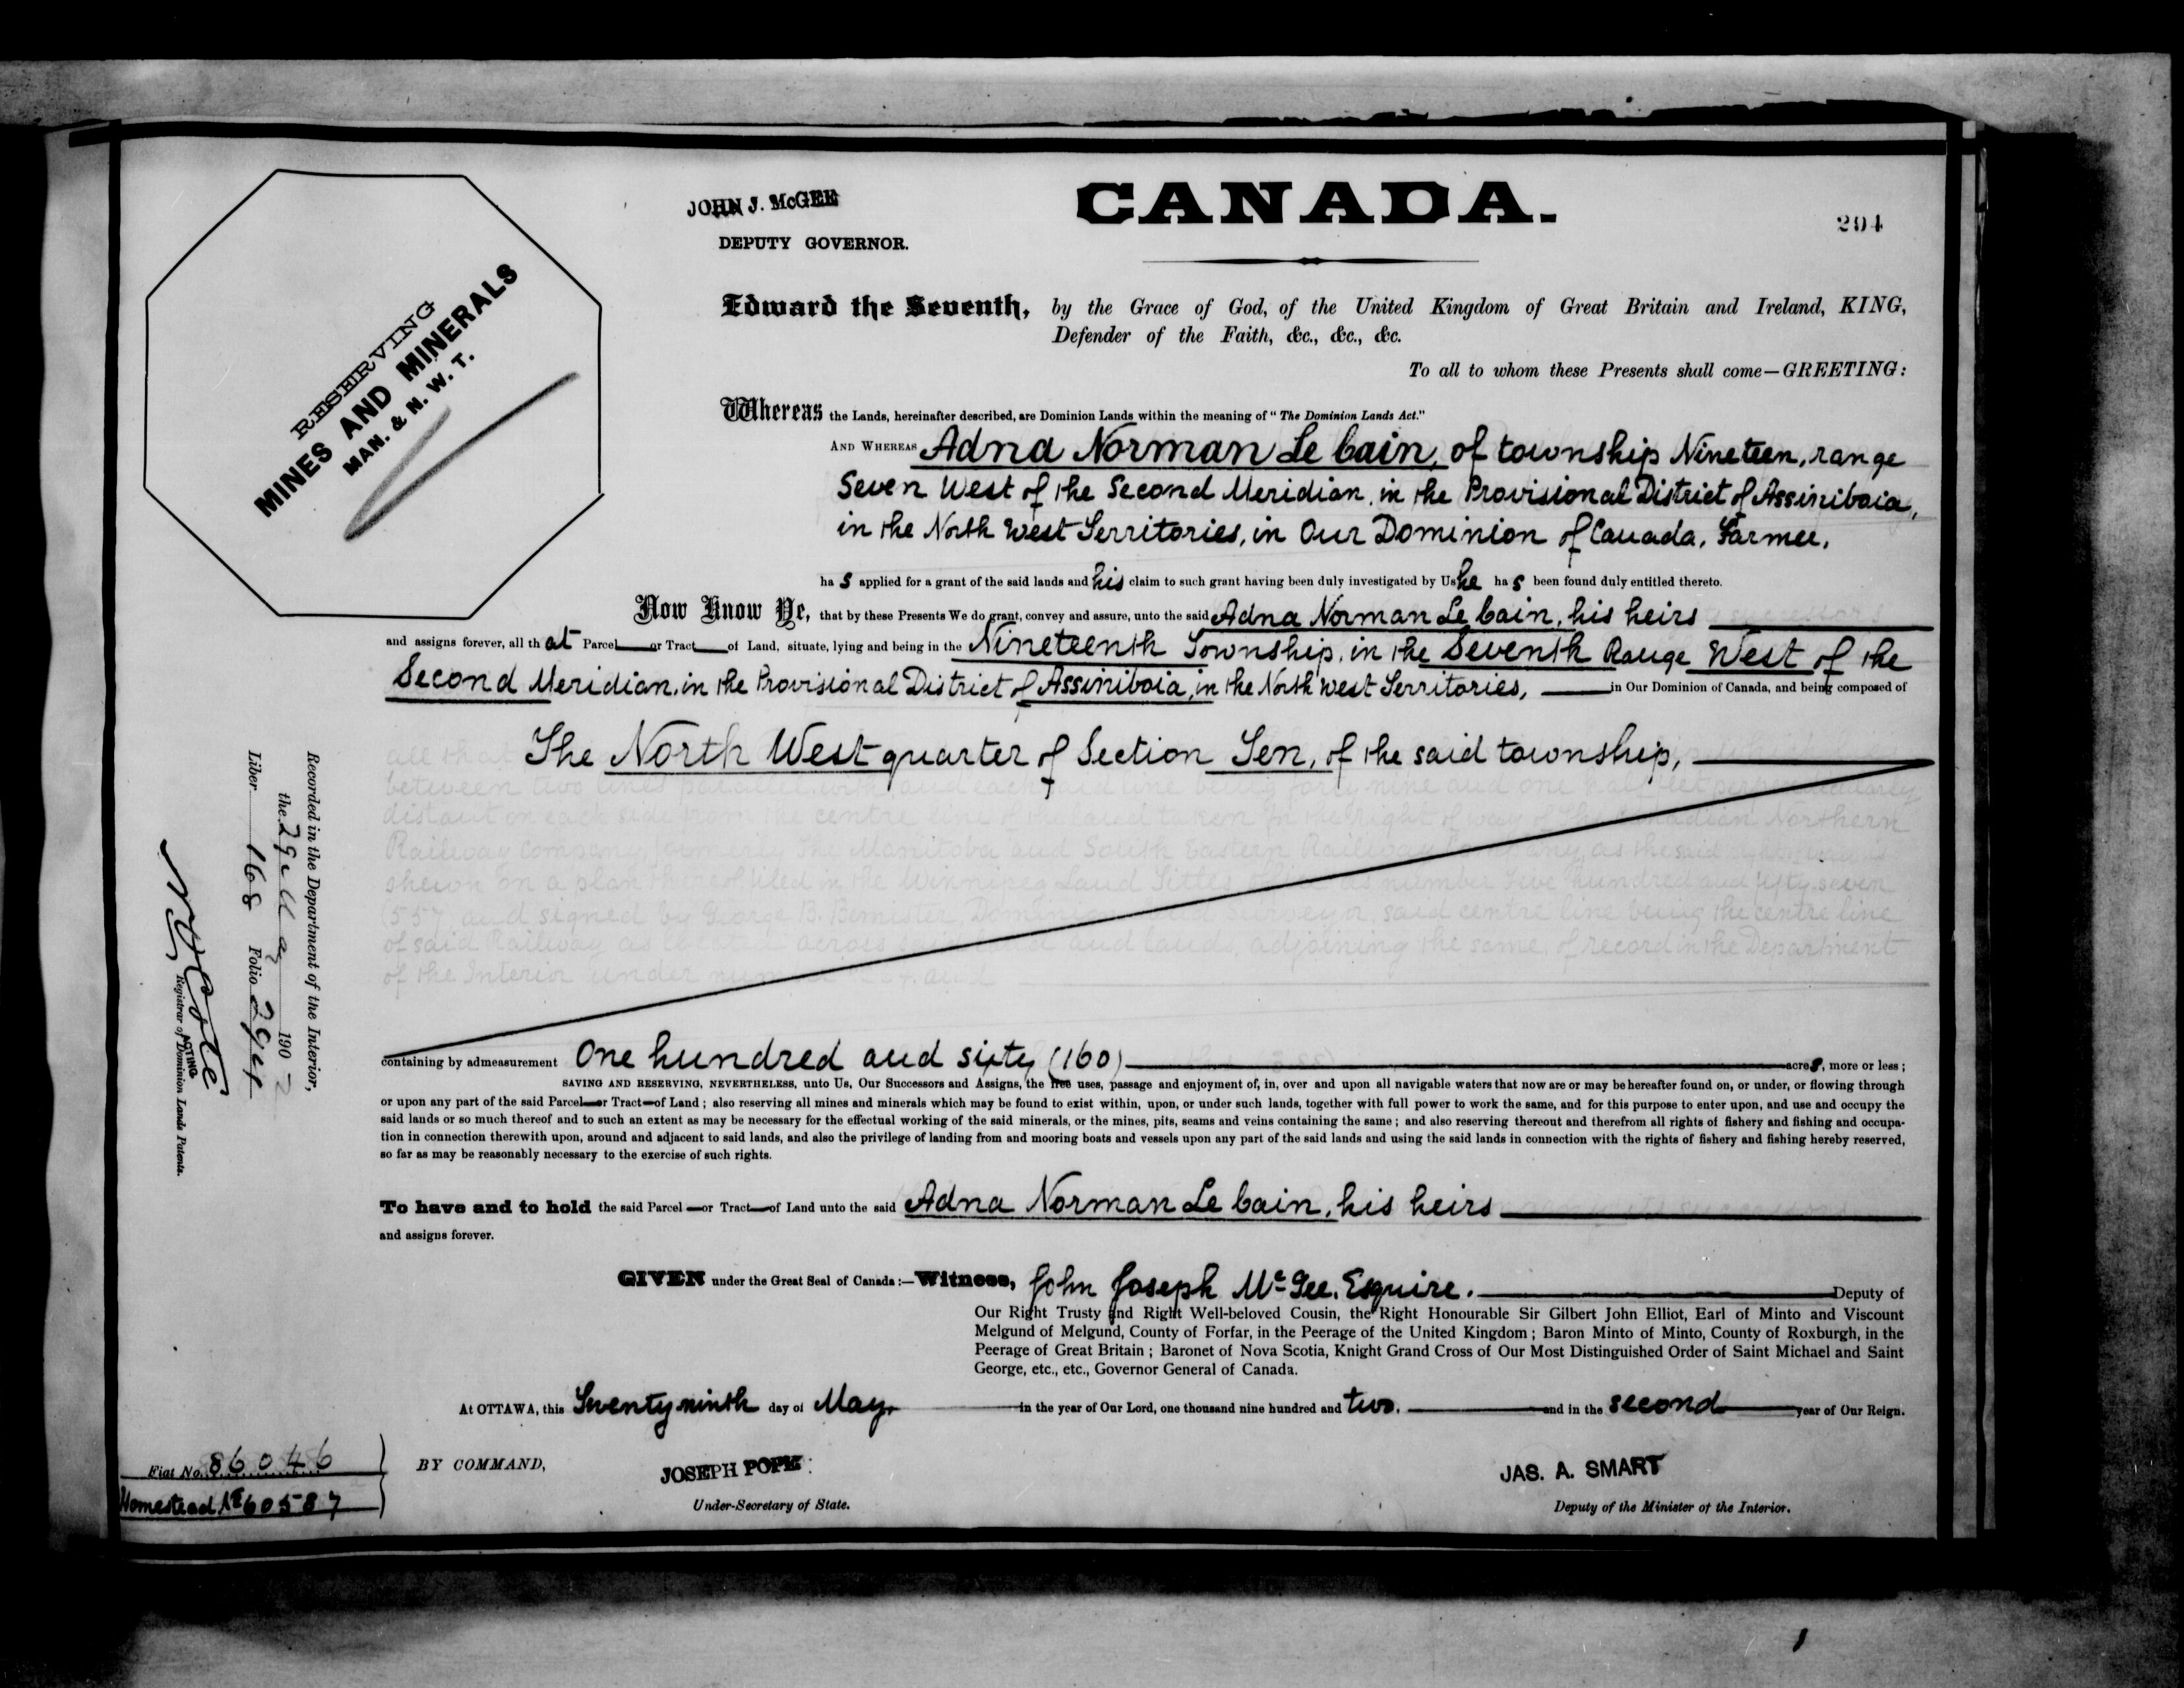 JOHN J. McGEE
DEPUTY GOVERNOR.
CANADA.
294
RESERVING
MINES AND MINERALS
MAN. & N. W. T.
Edward the Seventh, by the Grace of God, of the United Kingdom of Great Britain and Ireland, KING,
Defender of the Faith, &c., &c., &c.
To all to whom these Presents shall come—GREETING:
Whereas the Lands, hereinafter described, are Dominion Lands within the meaning of "The Dominion Lands Act."
AND WHEREAS Adna Norman Le Cain, of township Nineteen, range
Seven West of the Second Meridian, in the Provisional District of Assiniboia,
in the North West Territories, in Our Dominion of Canada, Farmer,
has applied for a grant of the said lands and his claim to such grant having been duly investigated by Us he has been found duly entitled thereto.
Now Know Ye, that by these Presents We do grant, convey and assure, unto the said Adna Norman Le Cain, his heirs
and assigns forever, all that Parcel or Tract of Land, situate, lying and being in the Nineteenth Township, in the Seventh Range West of the
Second Meridian, in the Provisional District of Assiniboia, in the North West Territories, in Our Dominion of Canada, and being composed of
The North West quarter of Section Ten, of the said township,
containing by admeasurement One hundred and sixty (160) acres, more or less;
SAVING AND RESERVING, NEVERTHELESS, unto Us, Our Successors and Assigns, the free uses, passage and enjoyment of, in, over and upon all navigable waters that now are or may be hereafter found on, or under, or flowing through
or upon any part of the said Parcel or Tract of Land; also reserving all mines and minerals which may be found to exist within, upon, or under such lands, together with full power to work the same, and for this purpose to enter upon, and use and occupy the
said lands or so much thereof and to such an extent as may be necessary for the effectual working of the said minerals, or the mines, pits, seams and veins containing the same; and also reserving thereout and therefrom all rights of fishery and fishing and occupa-
tion in connection therewith upon, around and adjacent to said lands, and also the privilege of landing from and mooring boats and vessels upon any part of the said lands and using the said lands in connection with the rights of fishery and fishing hereby reserved,
so far as may be reasonably necessary to the exercise of such rights.
To have and to hold the said Parcel or Tract of Land unto the said Adna Norman Le Cain, his heirs
and assigns forever.
GIVEN under the Great Seal of Canada:—Witness, John Joseph McGee, Esquire. Deputy of
Our Right Trusty and Right Well-beloved Cousin, the Right Honourable Sir Gilbert John Elliot, Earl of Minto and Viscount
Melgund of Melgund, County of Forfar, in the Peerage of the United Kingdom; Baron Minto of Minto, County of Roxburgh, in the
Peerage of Great Britain; Baronet of Nova Scotia, Knight Grand Cross of Our Most Distinguished Order of Saint Michael and Saint
George, etc., etc., Governor General of Canada.
At OTTAWA, this Twenty ninth day of May, in the year of Our Lord, one thousand nine hundred and two, and in the second year of Our Reign.
BY COMMAND,
JOSEPH POPE
Under-Secretary of State.
JAS. A. SMART
Deputy of the Minister of the Interior.
Fiat No. 86046
Homestead No 60587
Recorded in the Department of the Interior,
the 29th May 1902
Liber 168 Folio 294
N O Cote
ACTING
Registrar of Dominion Lands Patents.